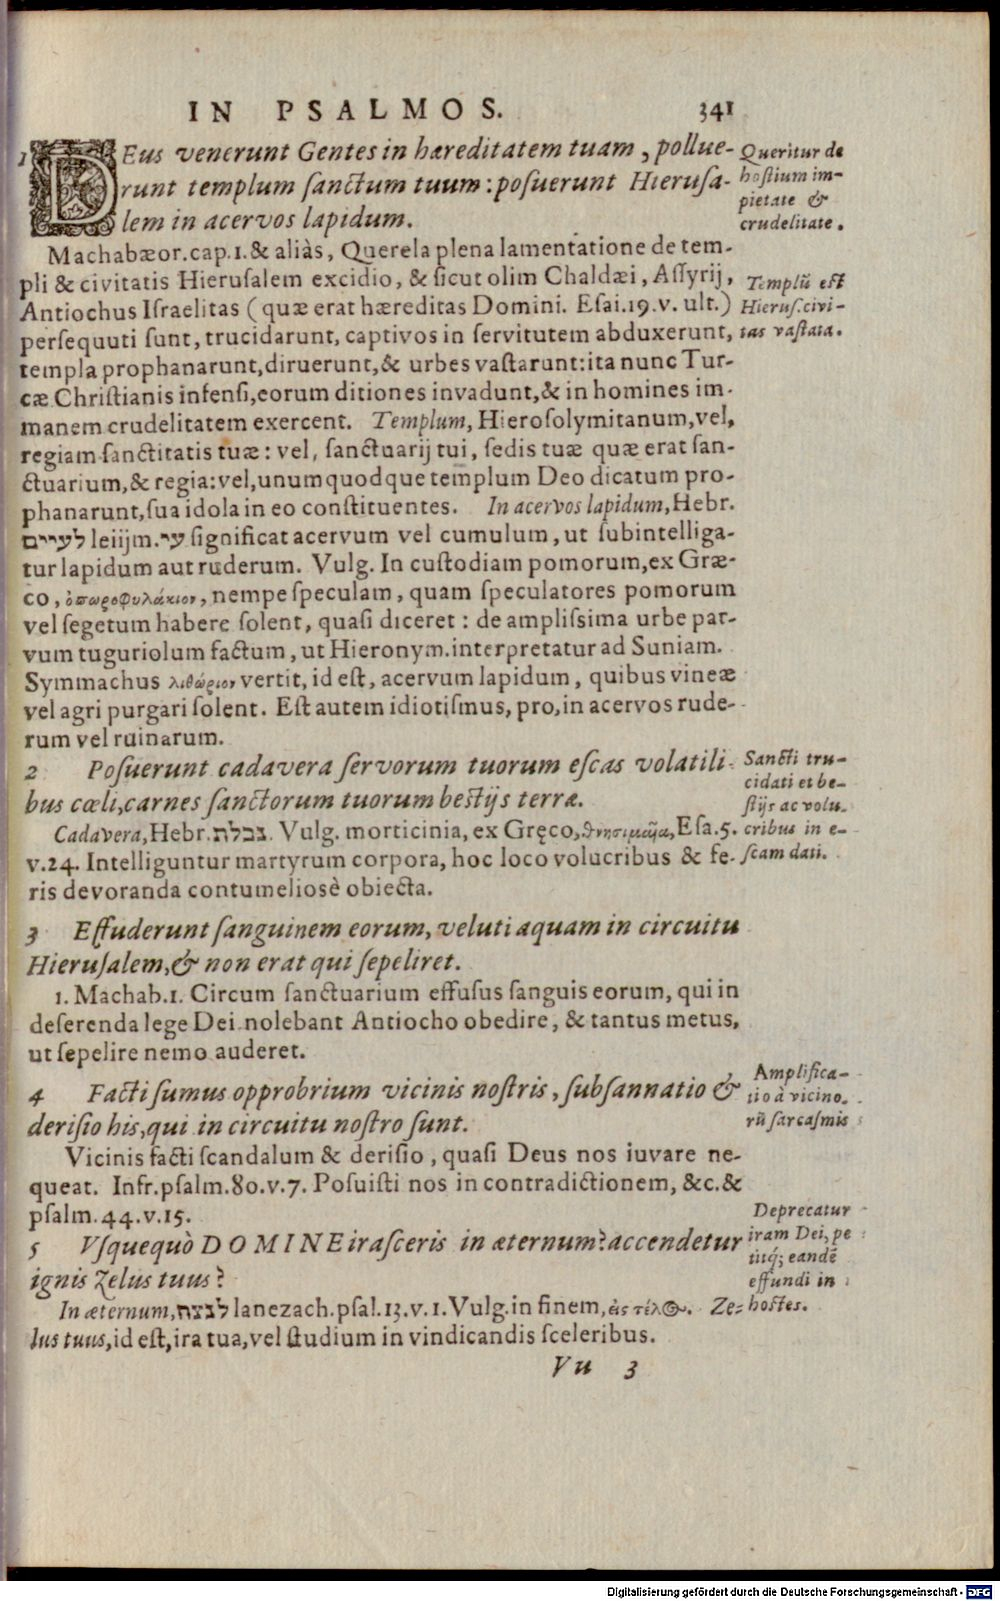 IN PSALMOS. 341
1 DEus venerunt Gentes in hæreditatem tuam, pollue-
runt templum ſanctum tuum: poſuerunt Hieruſa-
lem in acervos lapidum.
Queritur de
hoſtium im-
pietate &
crudelitate.
Machabæor. cap. 1. & aliàs, Querela plena lamentatione de tem-
pli & civitatis Hieruſalem excidio, & ſicut olim Chaldæi, Aſſyrij,
Antiochus Iſraelitas (quæ erat hæreditas Domini. Eſai. 19. v. ult.)
perſequuti ſunt, trucidarunt, captivos in ſervitutem abduxerunt,
templa prophanarunt, diruerunt, & urbes vaſtarunt: ita nunc Tur-
cæ Chriſtianis infenſi, eorum ditiones invadunt, & in homines im-
manem crudelitatem exercent. Templum, Hieroſolymitanum, vel,
regiam ſanctitatis tuæ: vel, ſanctuarij tui, ſedis tuæ quæ erat ſan-
ctuarium, & regia: vel, unumquodque templum Deo dicatum pro-
phanarunt, ſua idola in eo conſtituentes. In acervos lapidum, Hebr.
לעיים leiijm. עי ſignificat acervum vel cumulum, ut ſubintelliga-
tur lapidum aut ruderum. Vulg. In cuſtodiam pomorum, ex Græ-
co, ὀπωροφυλάκιον, nempe ſpeculam, quam ſpeculatores pomorum
vel ſegetum habere ſolent, quaſi diceret: de ampliſsima urbe par-
vum tuguriolum factum, ut Hieronym. interpretatur ad Suniam.
Symmachus λιθώριον vertit, id eſt, acervum lapidum, quibus vineæ
vel agri purgari ſolent. Eſt autem idiotiſmus, pro, in acervos rude-
rum vel ruinarum.
Templũ eſt
Hieruſ. civi-
tas vaſtata.
2 Poſuerunt cadavera ſervorum tuorum eſcas volatili-
bus cœli, carnes ſanctorum tuorum beſtijs terræ.
Cadavera, Hebr. נבלת. Vulg. morticinia, ex Gręco, θνησιμαῖα, Eſa. 5.
v. 24. Intelliguntur martyrum corpora, hoc loco volucribus & fe-
ris devoranda contumelioſè obiecta.
Sancti tru-
cidati et be-
ſtijs ac volu-
cribus in e-
ſcam dati.
3 Effuderunt ſanguinem eorum, veluti aquam in circuitu
Hieruſalem, & non erat qui ſepeliret.
1. Machab. 1. Circum ſanctuarium effuſus ſanguis eorum, qui in
deferenda lege Dei nolebant Antiocho obedire, & tantus metus,
ut ſepelire nemo auderet.
4 Facti ſumus opprobrium vicinis noſtris, ſubſannatio &
deriſio his, qui in circuitu noſtro ſunt.
Amplifica-
tio à vicino-
rũ ſarcaſmis
Vicinis facti ſcandalum & deriſio, quaſi Deus nos iuvare ne-
queat. Infr. pſalm. 80. v. 7. Poſuiſti nos in contradictionem, &c. &
pſalm. 44. v. 15.
5 Vſquequò DOMINE iraſceris in æternum? accendetur
ignis Zelus tuus?
In æternum, לנצח lanezach. pſal. 13. v. 1. Vulg. in finem, εἰς τέλος. Ze-
lus tuus, id eſt, ira tua, vel ſtudium in vindicandis ſceleribus.
Deprecatur
iram Dei, pe
titq́; eandē
effundi in
hoſtes.
Vu 3
Digitalisierung gefördert durch die Deutsche Forschungsgemeinschaft - DFG